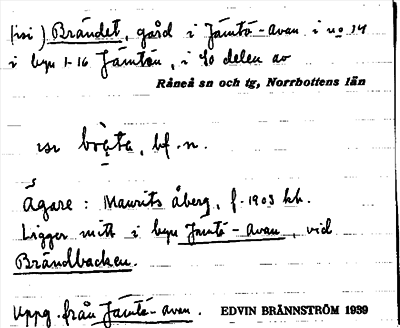 (isi) Brändet, gård i Jämtö-avan i no 14
i byn 1-16 Jämtön, i SO delen av
Råneå sn och tg, Norrbottens län
bf. n.
Ägare: Maurits Åberg, f. 1903 hh.
Ligger mitt i byn Jämtö-avan, vid
Brändbacken.
Uppg. från Jämtö-avan. EDVIN BRÄNNSTRÖM 1939